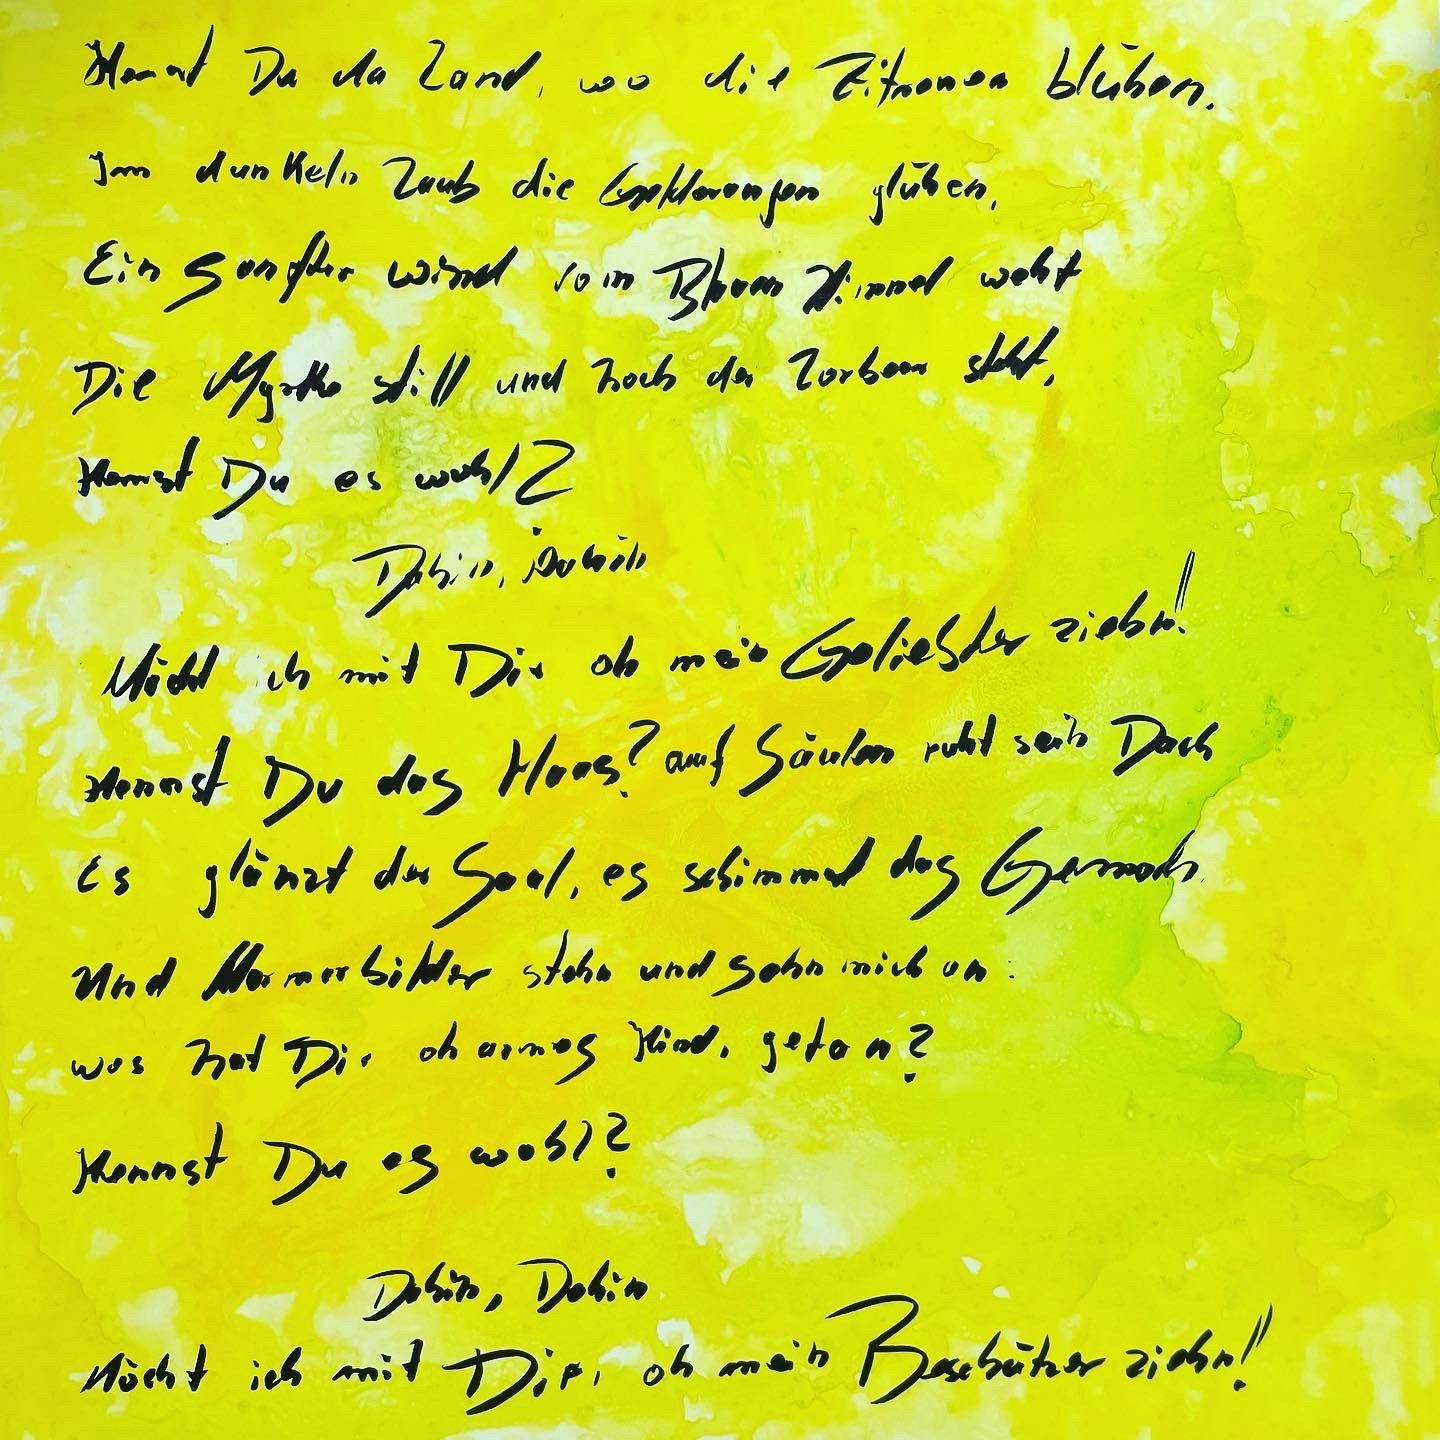 Kennst Du da Land, wo die Zitronen blühen.
Im dunkeln Laub die Goldorangen glühen,
Ein sanfter Wind vom Blauen Himmel weht
Die Myrthe still und hoch der Lorbeer steht,
Kennst Du es wohl?
Dahin, Dahin
Möcht ich mit Dir oh mein Geliebter ziehn!
Kennst Du das Haus? auf Säulen ruht sein Dach
Es glänzt der Saal, es schimmert das Gemach,
Und Marmorbilder stehn und sehn mich an:
Was hat Dir oh armes Kind, getan?
Kennst Du es wohl?
Dahin, Dahin
Möcht ich mit Dir, oh mein Beschützer ziehn!